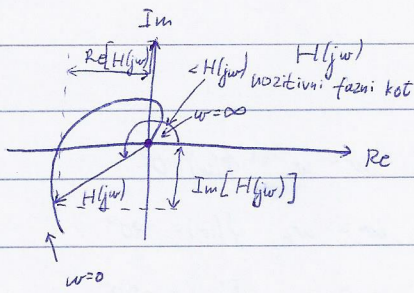 Im
Re[H(jw)]
H(jw)
<H(jw)
pozitivni fazni kot
w=∞
Re
H(jw)
Im[H(jw)]
w=0